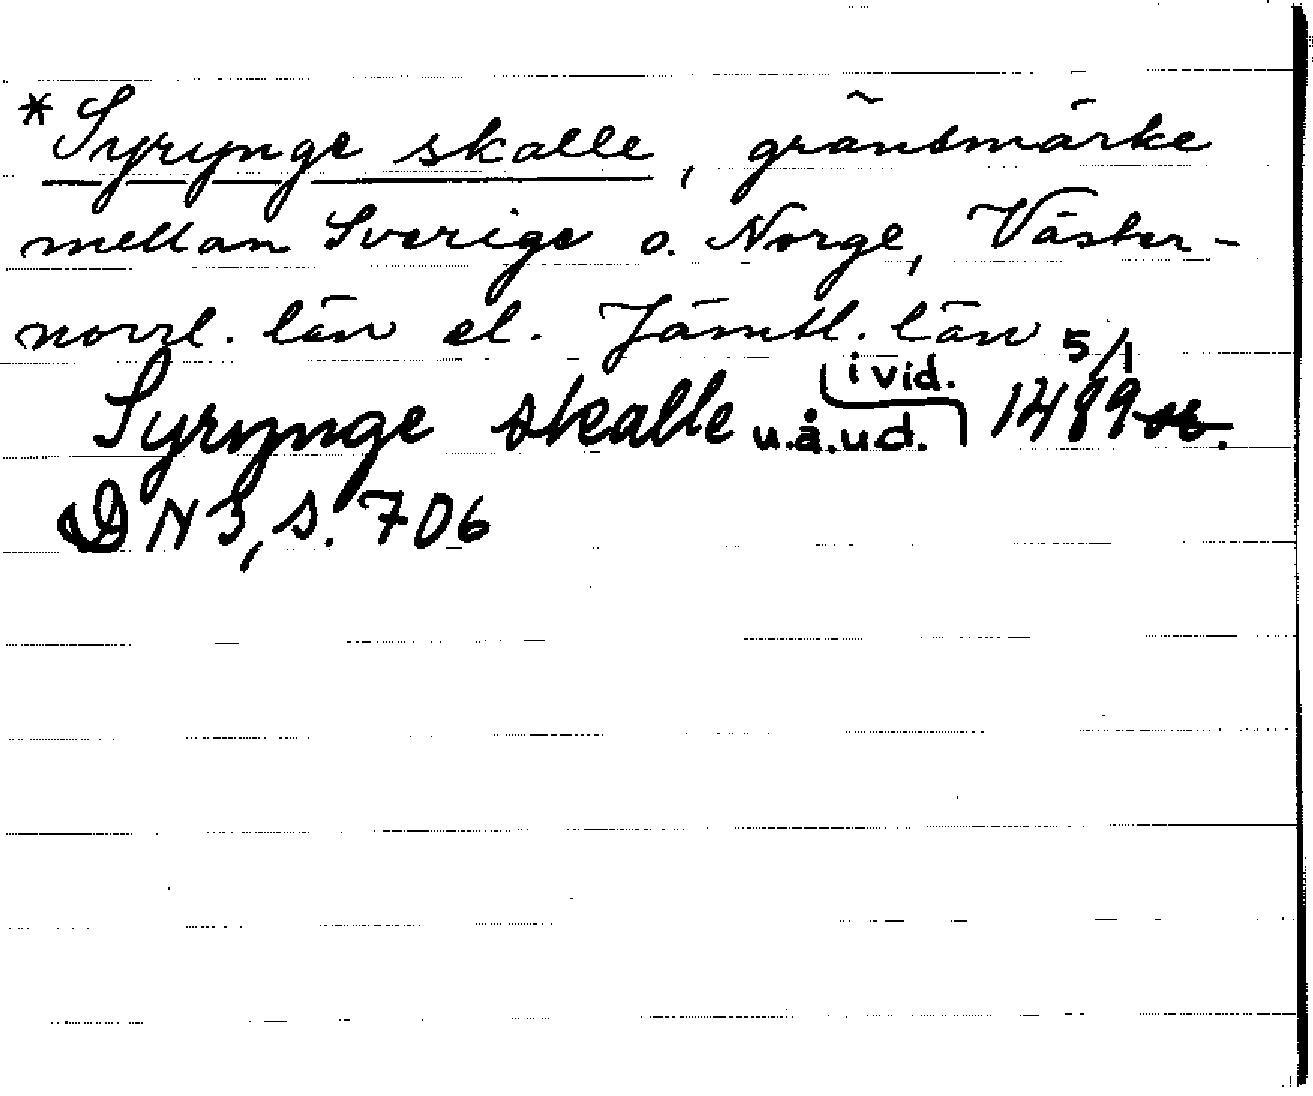 *Syrynge skalle, gränsmärke
mellan Sverige o. Norge, Väster-
norrl. län el. Jämtl. län
Syrynge skalle u.å.u.d. i vid. 5/1 1489
DN 3, s. 706